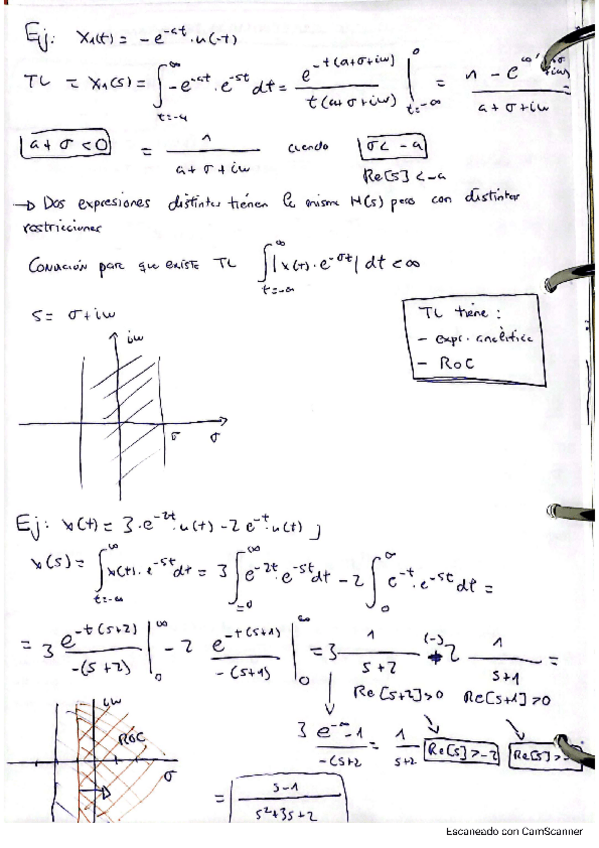 Ej: x₁(t) = -e^{-at}·u(-t)
TL = X₁(s) = ∫_{t=-∞}^{∞} -e^{-at}·e^{-st} dt = e^{-t(a+σ+iω)} / t(a+σ+iω) |_{t=-∞}^{0} = 1 - e^{∞ / a+σ+iω =
a+σ<0 = 1 / a+σ+iω cuando σ<-a
Re[s]<-a
→ Dos expresiones distintas tienen la misma H(s) pero con distintas
restricciones
Condición para que existe TL ∫_{t=-∞}^{∞} |x(t)·e^{-σt}| dt < ∞
s = σ+iω
iω
σ σ
TL tiene:
- expr. analítica
- RoC
Ej: x(t) = 3·e^{-2t}·u(t) - 2e^{-t}·u(t)
x(s) = ∫_{t=-∞}^{∞} x(t)·e^{-st} dt = 3∫_{=0}^{∞} e^{-2t}·e^{-st} dt - 2∫_{0}^{∞} e^{-t}·e^{-st} dt =
= 3 e^{-t(s+2)} / -(s+2) |_{0}^{∞} - 2 e^{-t(s+1)} / -(s+1) |_{0}^{∞} = 3 1 / s+2 (-) 2 1 / s+1 =
Re[s+2]>0 Re[s+1]>0
iω
RoC
σ
3 e^{-∞}-1 / -(s+2 = 1 / s+2 Re[s]>-2 Re[s]>-
= s-1 / s²+3s+2
Escaneado con CamScanner